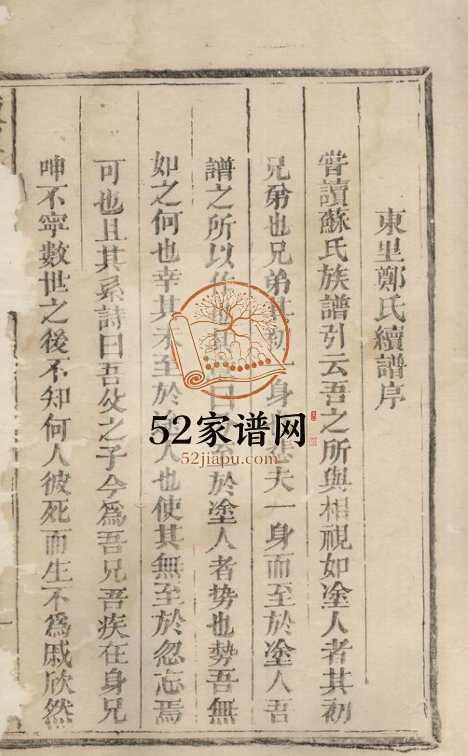 東里鄭氏續譜序
嘗讀蘇氏族譜引云吾之所與相視如塗人者其初
兄弟也兄弟其初一身也悲夫一身而至於塗人吾
譜之所以作也其意曰分至於塗人者势也勢吾無
如之何也幸其未至於塗人也使其無至於忽忘焉
可也且其系詩曰吾父之子今為吾兄吾疾在身兄
呻不寧數世之後不知何人彼死而生不為戚欣然
52家谱网
52jiapu.com